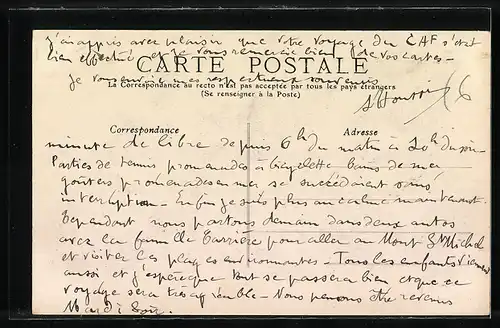 j'ai appris avec plaisir que votre voyage du CAF s'est
bien effectué et je vous remercie bien de vos cartes -
Je vous envoie mes respectueux souvenirs
CARTE POSTALE
La Correspondance au recto n'est pas acceptée par tous les pays étrangers
(Se renseigner à la Poste)
Correspondance
Adresse
minute de libre depuis 6h du matin à 10h du soir
Parties de tennis promenades à bicyclette bains de mer
goûters promenades en mer, se succédaient sans
interruption - Enfin je suis plus au calme maintenant.
Cependant nous partons demain dans deux autos
avec la famille pour aller au Mont St Michel
et visiter les plages environnantes - Tous les enfants viennent
aussi et j'espère que tout se passera bien et que ce
voyage sera très agréable - Nous pensons être revenus
Mardi soir.